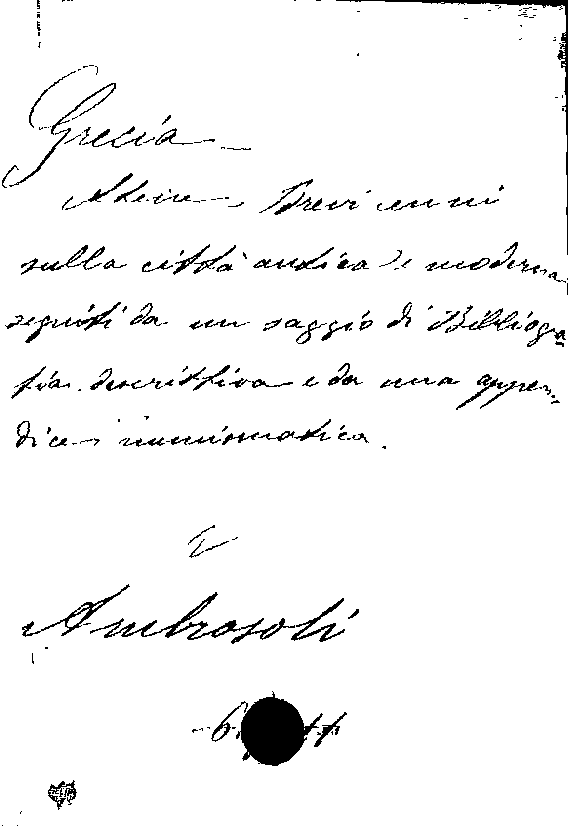 Grecia
Atene Brevi cenni
sulla città antica e moderna
seguiti da un saggio di Bibliogra
fia descrittiva e da una appen-
dice numismatica.
Ambrosoli